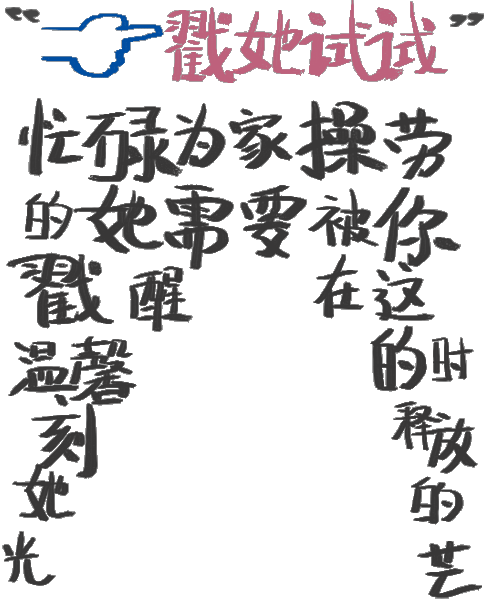 “戳她试试”
忙碌为家操劳
的她需要被你
戳醒 在这
温馨 的时
刻、释放
她 的
光 芒